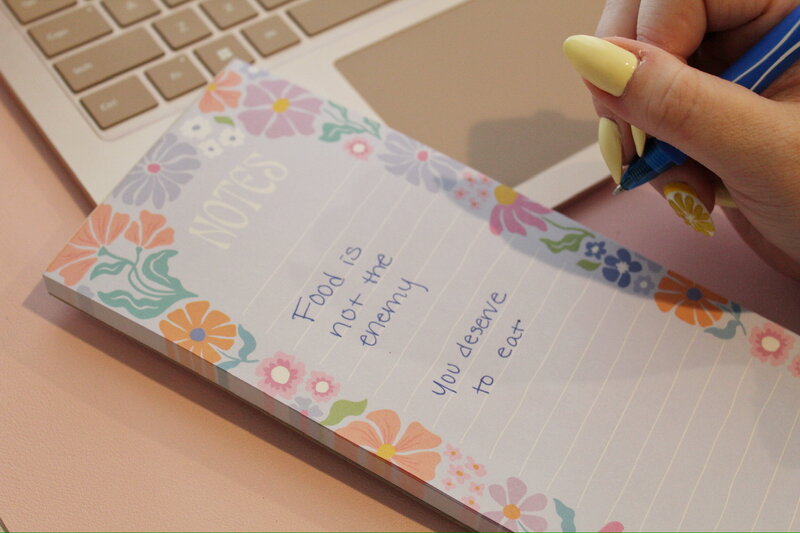 NOTES
Food is
not the
enemy
You deserve
to eat.